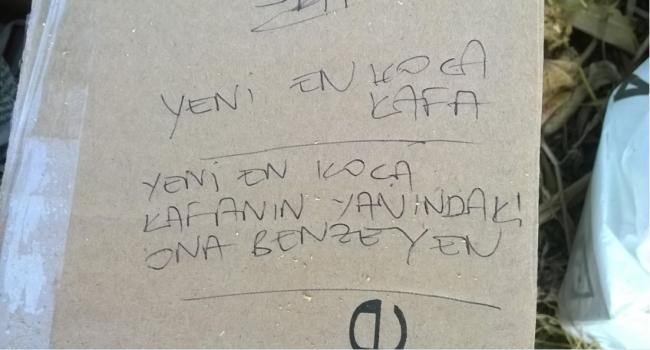 YENİ EN KOCA
KAFA
YENİ EN KOCA
KAFANIN YANINDAKİ
ONA BENZEYEN